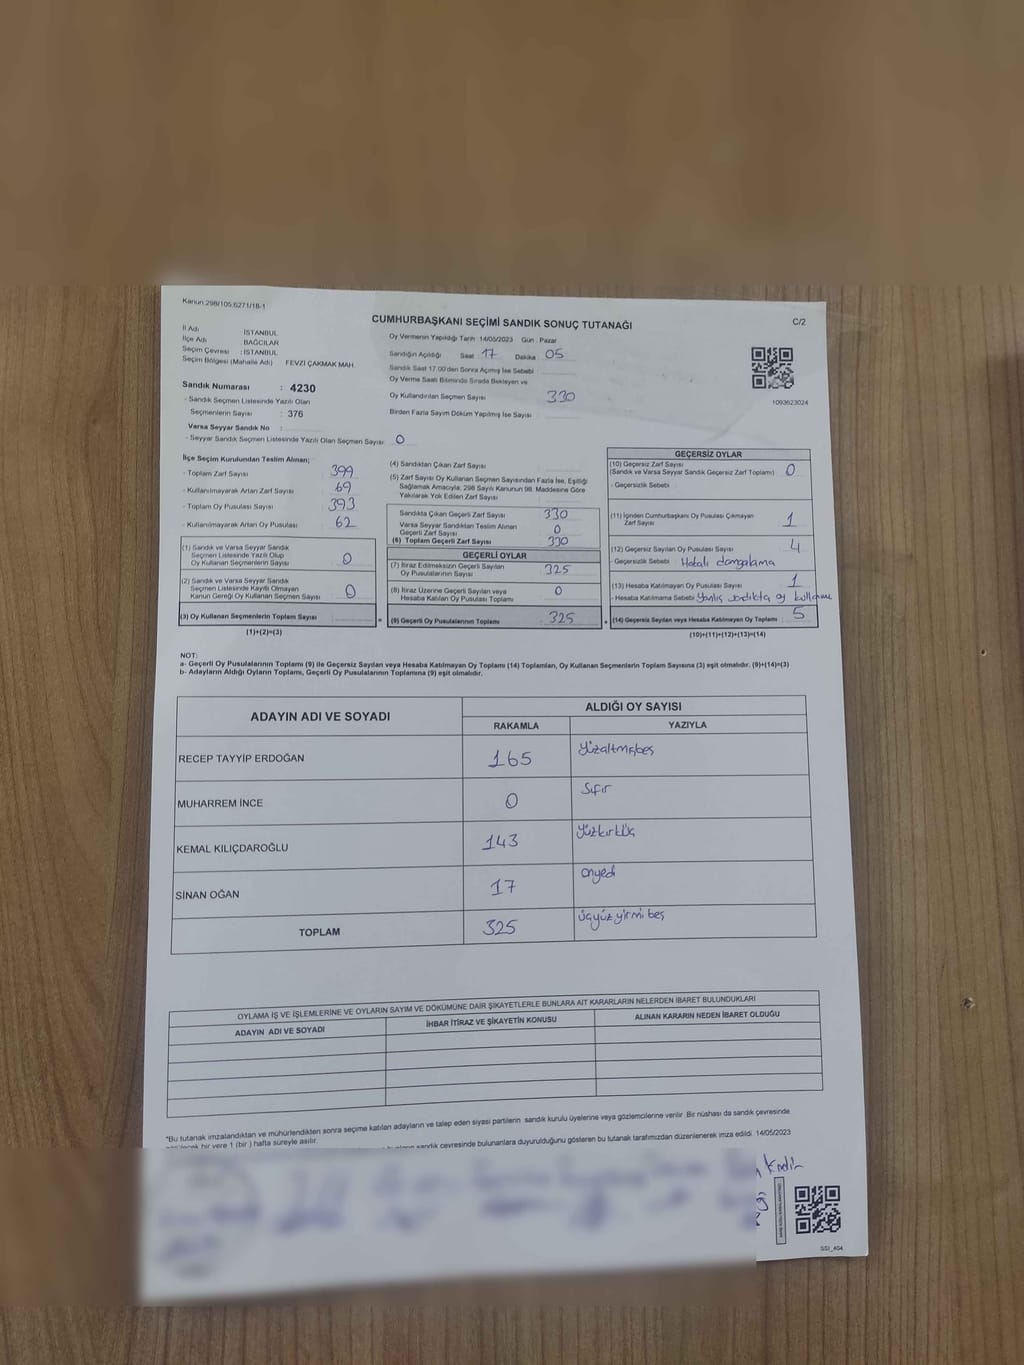 Kanun:298/105,6271/18-1
CUMHURBAŞKANI SEÇİMİ SANDIK SONUÇ TUTANAĞI
C/2
İl Adı : İSTANBUL
İlçe Adı : BAĞCILAR
Seçim Çevresi : İSTANBUL
Seçim Bölgesi (Mahalle Adı) : FEVZİ ÇAKMAK MAH
Sandık Numarası : 4230
- Sandık Seçmen Listesinde Yazılı Olan
Seçmenlerin Sayısı : 376
Varsa Seyyar Sandık No :
- Seyyar Sandık Seçmen Listesinde Yazılı Olan Seçmen Sayısı: 0
Oy Vermenin Yapıldığı Tarih 14/05/2023 Gün Pazar
Sandığın Açıldığı Saat 17 Dakika 05
Sandık Saat 17.00'den Sonra Açılmış İse Sebebi
Oy Verme Saati Bitiminde Sırada Bekleyen ve
Oy Kullandırılan Seçmen Sayısı 330
Birden Fazla Sayım Döküm Yapılmış İse Sayısı
1093623024
İlçe Seçim Kurulundan Teslim Alınan;
- Toplam Zarf Sayısı 399
- Kullanılmayarak Artan Zarf Sayısı 69
- Toplam Oy Pusulası Sayısı 393
- Kullanılmayarak Artan Oy Pusulası 62
(1) Sandık ve Varsa Seyyar Sandık
Seçmen Listesinde Yazılı Olup
Oy Kullanan Seçmenlerin Sayısı 0
(2) Sandık ve Varsa Seyyar Sandık
Seçmen Listesinde Kayıtlı Olmayan
Kanun Gereği Oy Kullanan Seçmen Sayısı 0
(3) Oy Kullanan Seçmenlerin Toplam Sayısı =
(1)+(2)=(3)
(4) Sandıktan Çıkan Zarf Sayısı
(5) Zarf Sayısı Oy Kullanan Seçmen Sayısından Fazla İse, Eşitliği
Sağlamak Amacıyla, 298 Sayılı Kanunun 98. Maddesine Göre
Yakılarak Yok Edilen Zarf Sayısı
Sandıkta Çıkan Geçerli Zarf Sayısı 330
Varsa Seyyar Sandıktan Teslim Alınan
Geçerli Zarf Sayısı 0
(6) Toplam Geçerli Zarf Sayısı 330
GEÇERLİ OYLAR
(7) İtiraz Edilmeksizin Geçerli Sayılan
Oy Pusulalarının Sayısı 325
(8) İtiraz Üzerine Geçerli Sayılan veya
Hesaba Katılan Oy Pusulası Toplamı 0
(9) Geçerli Oy Pusulalarının Toplamı 325 +
GEÇERSİZ OYLAR
(10) Geçersiz Zarf Sayısı
(Sandık ve Varsa Seyyar Sandık Geçersiz Zarf Toplamı) 0
- Geçersizlik Sebebi
(11) İçinden Cumhurbaşkanı Oy Pusulası Çıkmayan
Zarf Sayısı 1
(12) Geçersiz Sayılan Oy Pusulası Sayısı 4
- Geçersizlik Sebebi Hatalı damgalama
(13) Hesaba Katılmayan Oy Pusulası Sayısı 1
- Hesaba Katılmama Sebebi Yanlış sandıkta oy kullanma
(14) Geçersiz Sayılan veya Hesaba Katılmayan Oy Toplamı 5
(10)+(11)+(12)+(13)=(14)
NOT:
a- Geçerli Oy Pusulalarının Toplamı (9) ile Geçersiz Sayılan veya Hesaba Katılmayan Oy Toplamı (14) Toplamları, Oy Kullanan Seçmenlerin Toplam Sayısına (3) eşit olmalıdır. (9)+(14)=(3)
b- Adayların Aldığı Oyların Toplamı, Geçerli Oy Pusulalarının Toplamına (9) eşit olmalıdır.
ADAYIN ADI VE SOYADI
ALDIĞI OY SAYISI
RAKAMLA YAZIYLA
RECEP TAYYİP ERDOĞAN 165 Yüzaltmışbeş
MUHARREM İNCE 0 Sıfır
KEMAL KILIÇDAROĞLU 143 Yüzkırküç
SİNAN OĞAN 17 Onyedi
TOPLAM 325 üçyüzyirmi beş
OYLAMA İŞ VE İŞLEMLERİNE VE OYLARIN SAYIM VE DÖKÜMÜNE DAİR ŞİKAYETLERLE BUNLARA AİT KARARLARIN NELERDEN İBARET BULUNDUKLARI
ADAYIN ADI VE SOYADI İHBAR İTİRAZ VE ŞİKAYETİN KONUSU ALINAN KARARIN NEDEN İBARET OLDUĞU
"Bu tutanak imzalandıktan ve mühürlendikten sonra seçime katılan adayların ve talep eden siyasi partilerin sandık kurulu üyelerine veya gözlemcilerine verilir. Bir nüshası da sandık çevresinde
bir yere 1 (bir) hafta süreyle asılır.
sandık çevresinde bulunanlara duyurulduğunu gösteren bu tutanak tarafımızdan düzenlenerek imza edildi. 14/05/2023
Kadir
SSI_404